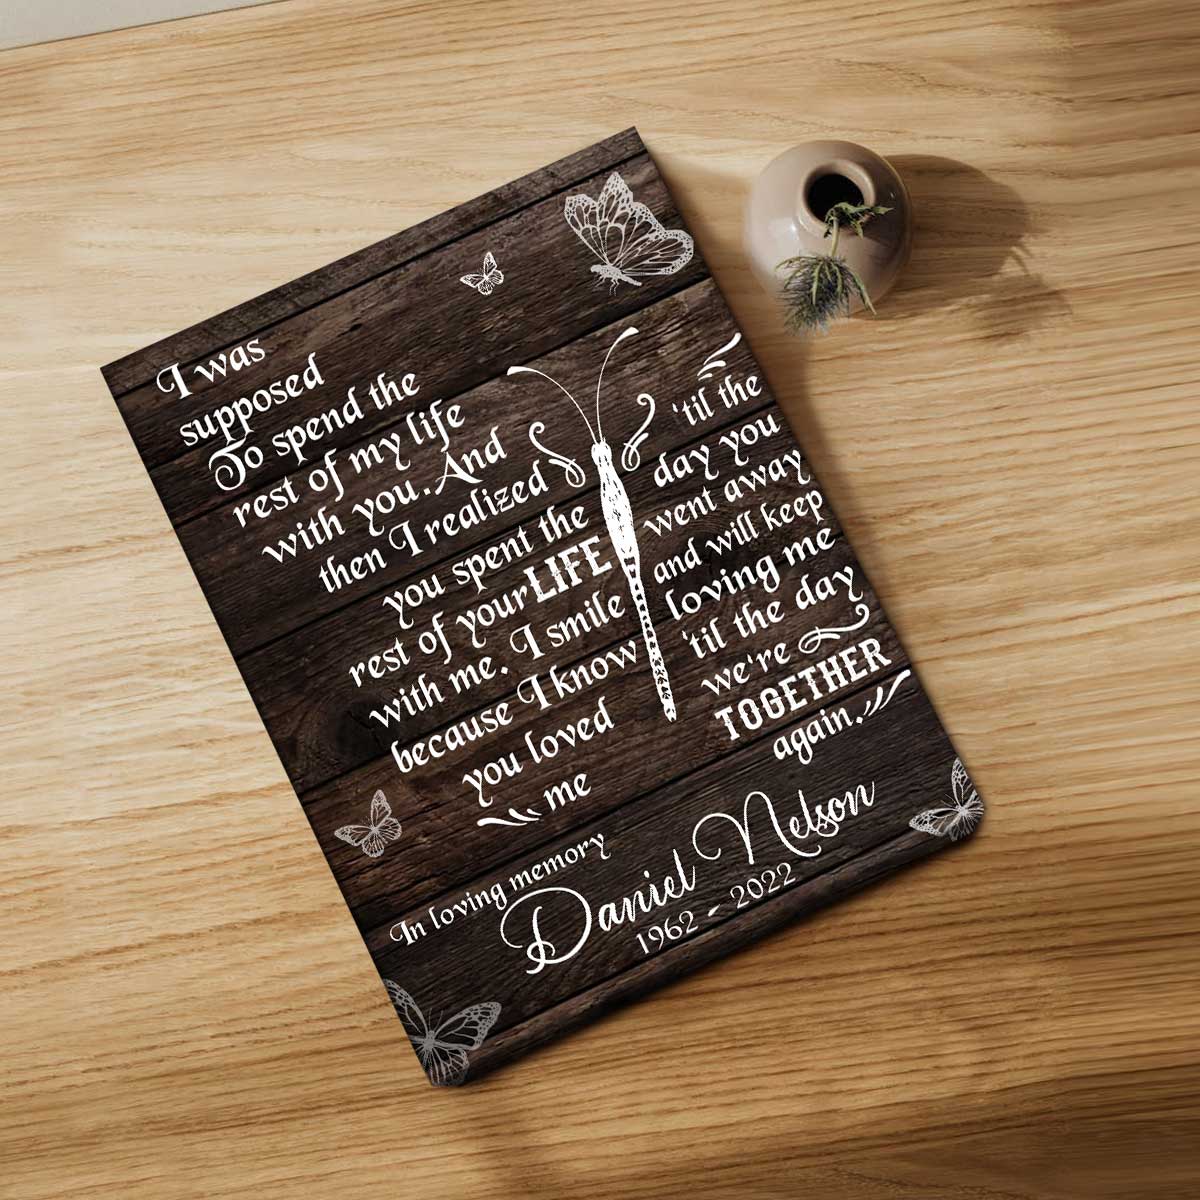 I was
supposed
To spend the
rest of my life
with you. And
then I realized
you spent the
rest of your LIFE
with me. I smile
because I know
you loved
me
'til the
day you
went away
and will keep
loving me
'til the day
we're
TOGETHER
again.
In loving memory
Daniel Nelson
1962 - 2022